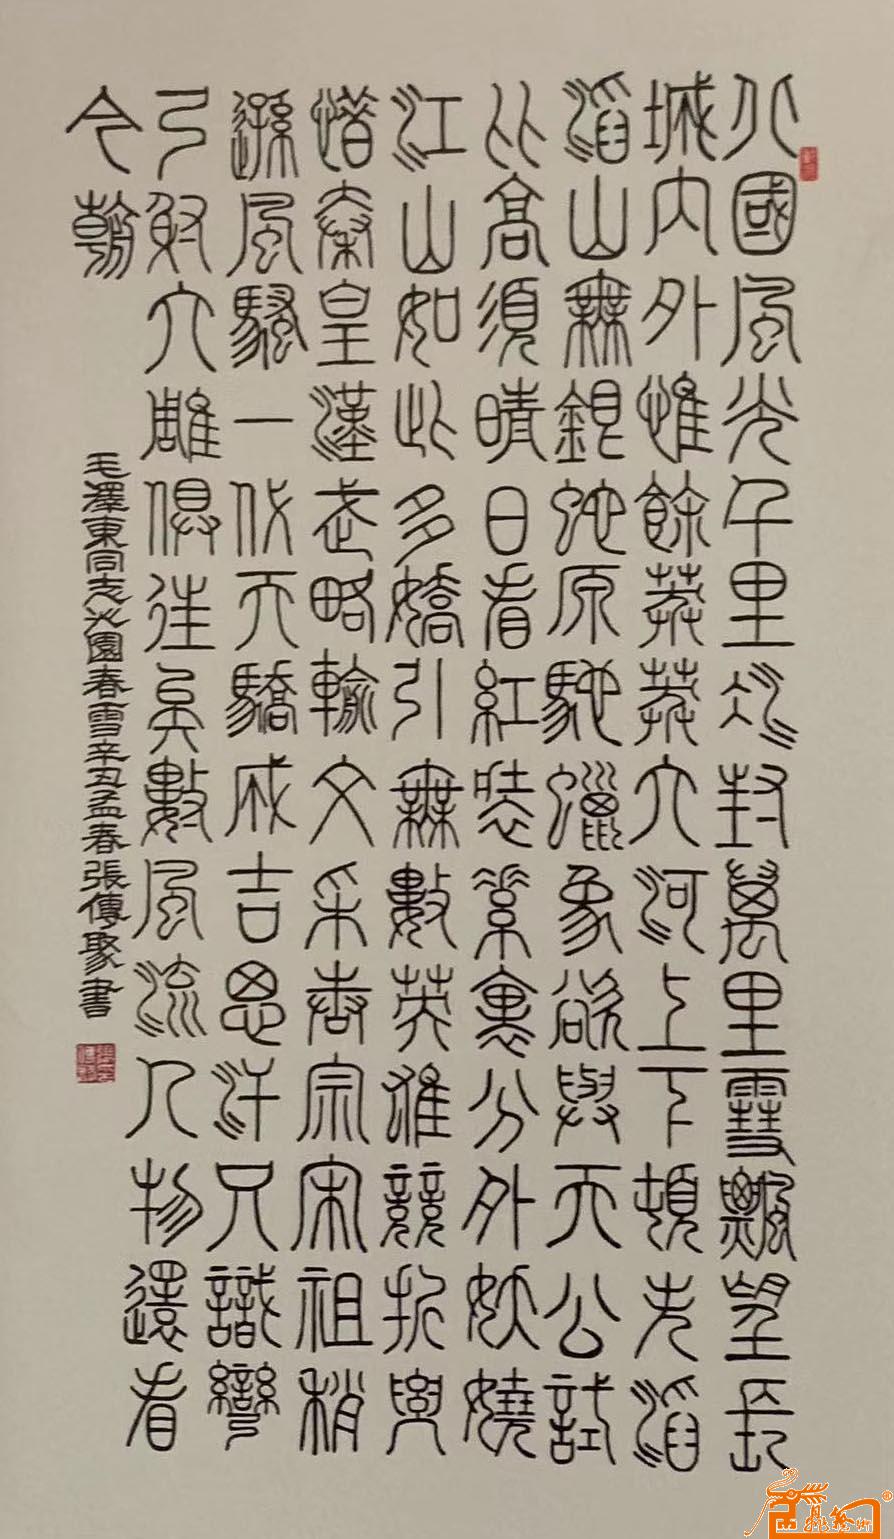 北國風光千里冰封萬里雪飄望長
城內外惟餘莽莽大河上下頓失滔
滔山舞銀蛇原馳蠟象欲與天公試
比高須晴日看紅裝素裹分外妖嬈
江山如此多嬌引無數英雄競折腰
惜秦皇漢武略輸文采唐宗宋祖稍
遜風騷一代天驕成吉思汗只識彎
弓射大雕俱往矣數風流人物還看
今朝
毛澤東同志沁園春雪辛丑孟春張傳聚書